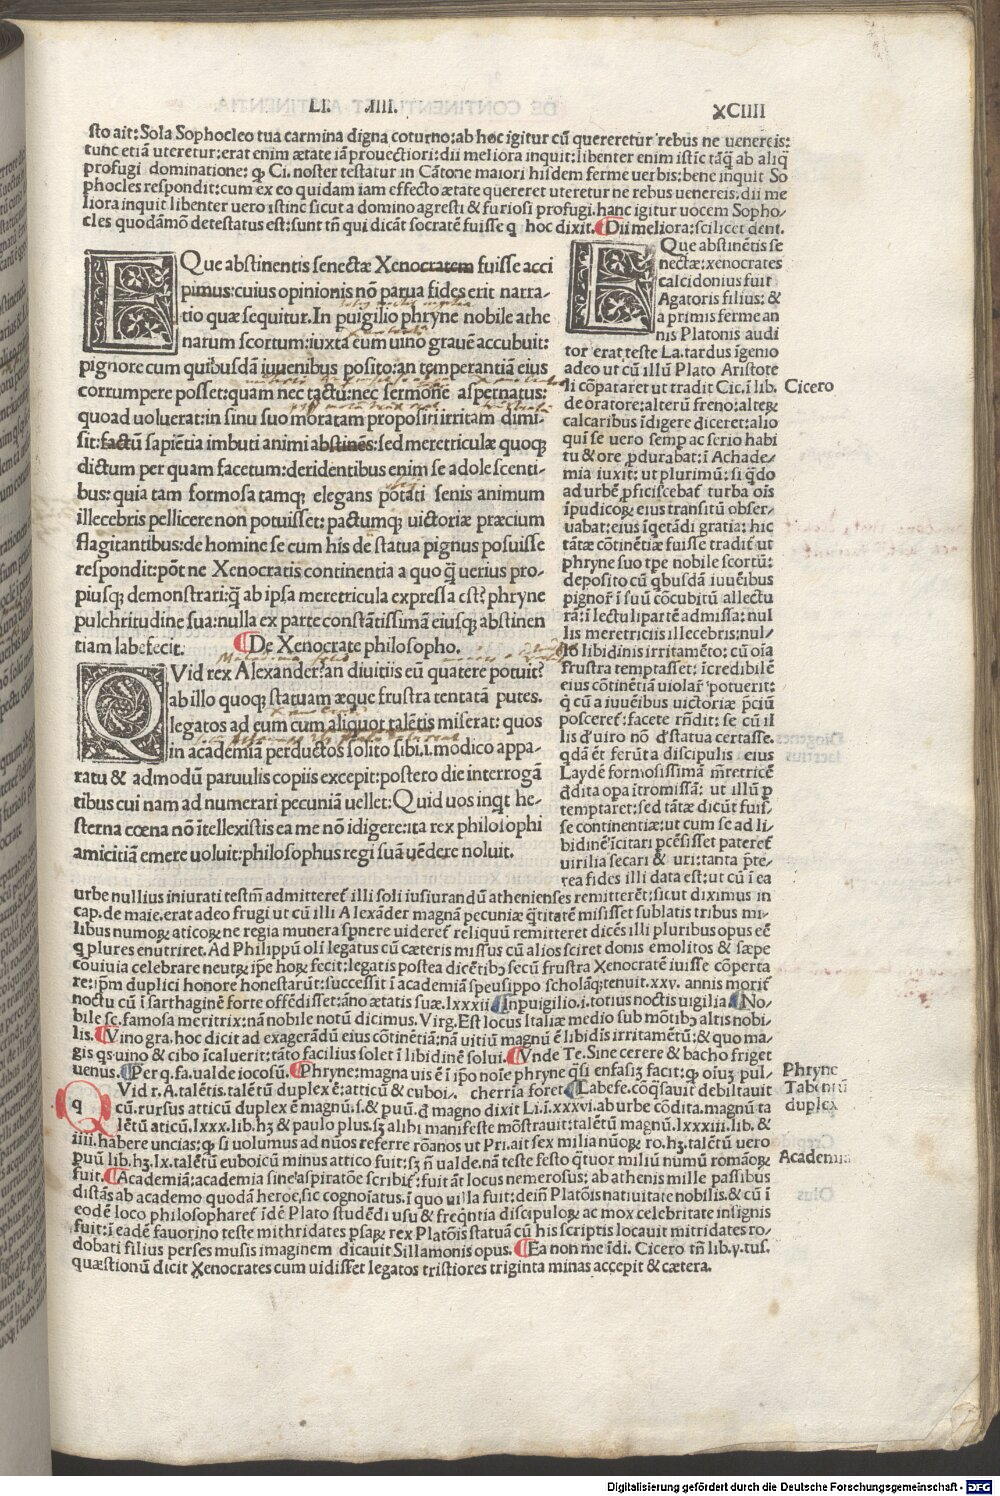 LI. .IIII. XCIIII
sto ait: Sola Sophocleo tua carmina digna coturno: ab hoc igitur cū quereretur rebus ne uenereis:
tunc etiā uteretur: erat enim ætate iā prouectiori: dii meliora inquit: libenter enim istīc tāq̄ ab aliq̄
profugi dominatione: ꝙ Ci. noster testatur in Catone maiori hisdem ferme uerbis: bene inquit So
phocles respondit: cum ex eo quidam iam effecto ætate quereret uteretur ne rebus uenereis. dii me
liora inquit libenter uero istinc sicut a domino agresti & furiosi profugi. hanc igitur uocem Sopho⸗
cles quodāmō detestatus est: sunt tñ qui dicāt socratē fuisse q hoc dixit. ¶Dii meliora: scilicet dent.
EQue abstinentis senectæ Xenocratem fuisse acci
pimus: cuius opinionis nō parua fides erit narra⸗
tio quæ sequitur. In puigilio phryne nobile athe
narum scortum: iuxta eum uino grauē accubuit:
pignore cum quibusdā iuuenibus posito: an temperantiā eius
corrumpere posset: quam nec tactu: nec sermone aspernatus:
quoad uoluerat: in sinu suo moratam propositi irritam dimi⸗
sit: factū sapiētia imbuti animi abstinēs: sed meretriculæ quoqꝫ
dictum per quam facetum: deridentibus enim se adolescenti⸗
bus: quia tam formosa tamqꝫ elegans potati senis animum
illecebris pellicere non potuisset: pactumqꝫ uictoriæ præcium
flagitantibus: de homine se cum his de statua pignus posuisse
respondit: pōt ne Xenocratis continentia a quo q̄ uerius pro⸗
piusqꝫ demonstrari: q̄ ab ipsa meretricula expressa est? phryne
pulchritudine sua: nulla ex parte constātissimā eiusqꝫ abstinen
tiam labefecit. ¶De Xenocrate philosopho.
QVid rex Alexander? an diuitiis eū quatere potuit?
ab illo quoqꝫ statuam æque frustra tentatā putes.
legatos ad eum cum aliquot talētis miserat: quos
in academiā perductos solito sibi. i. modico appa⸗
ratu & admodū paruulis copiis excepit: postero die interrogā
tibus cui nam ad numerari pecuniā uellet: Quid uos inqt he⸗
sterna cœna nō ītellexistis ea me nō idigere: ita rex philosophi
amicitiā emere uoluit: philosophus regi suā uēdere noluit.
EQue abstinētis se
nectæ: xenocrates
calcidonius fuit
Agatoris filius: &
a primis ferme an
nis Platonis audi
tor erat teste La. tardus īgenio
adeo ut cū illū Plato Aristote
li cōpararet ut tradit Cic. ī lib. Cicero
de oratore: alterū freno: alteꝝ
calcaribus īdigere diceret: alio
qui se uero semp ac serio habi
tu & ore pdurabat: ī Achade⸗
mia iuxit: ut plurimū: si q̄do
ad urbē pficiscebat turba oīs
īpudicoꝝ eius transitū obser⸗
uabat: eius īqetādi gratia: hic
tātæ cōtinētiæ fuisse tradit ut
phryne suo tpe nobile scortū:
deposito cū q̄busdā iuuēibus
pignori ī suū cōcubitū allectu
ra: ī lectuli partē admissa: nul
lis meretriciis illecebris: nul⸗
lo libidinis irritamēto: cū oīa
frustra temptasset: īcredibilē
eius cōtinētiā uiolari potuerit:
q̄ cū a iuuēibus uictoriæ pciū
posceret: facete rñdit: se cū il
lis d̄ uiro nō d̄ statua certasse.
qdā ēt ferūt a discipulis eius
Laydē formosissimā mretricē
ddita opa ītromissā: ut illū p
temptaret: sed tātæ dicūt fuis⸗
se continentiæ: ut cum se ad li⸗
bidinē icitari pcēsisset pateret
uirilia secari & uri: tanta pte⸗
rea fides illi data est: ut cū ī ea
urbe nullius iniurati testm̄ admitteret illi soli iusiurandū athenienses remitterēt: sicut diximus in
cap. de maie. erat adeo frugi ut cū illi Alexāder magnā pecuniæ q̄titatē misisset sublatis tribus mi⸗
libus numoꝝ aticoꝝ ne regia munera spnere uideret reliquū remitteret dicēs illi pluribus opus eē
ꝙ plures enutriret. Ad Philippū olī legatus cū cæteris missus cū alios sciret donis emolitos & sæpe
cōuiuia celebrare neutꝝ ipe hoꝝ fecit: legatis postea dicētibꝰ secū frustra Xenocratē iuisse cōperta
re: ipm duplici honore honestarūt: successit ī academiā speusippo scholāqꝫ tenuit. xxv. annis morit
noctu cū ī sarthaginē forte offēdisset: āno ætatis suæ. lxxxii ¶In puigilio. i. totius noctis uigilia. ¶No⸗
bile sc. famosa meritrix: nā nobile notū dicimus. Virg. Est locus Italiæ medio sub mōtibꝰ altis nobi⸗
lis. ¶Vino gra. hoc dicit ad exagerādū eius cōtinētiā: nā uitiū magnū ē libidis irritamētū: & quo ma⸗
gis qs uino & cibo īcaluerit: tāto facilius solet ī libidinē solui. ¶Vnde Te. Sine cerere & bacho friget
uenus. ¶Per q. fa. ualde iocosū. ¶Phryne: magna uis ē ī ipo noīe phryne q̄si enfasiꝫ facit: ꝙ oīuꝫ pul⸗ Phryne
QVid r. A. talētis. talētū duplex ē: atticū & euboi. cherria foret ¶Labefe. cōq̄sauit debiltauit Talentū
cū. rursus atticū duplex ē magnū. s. & puū. d̄ magno dixit Li. ī. xxxvi. ab urbe cōdita. magnū ta duplex
lētū aticū. lxxx. lib. hꝫ & paulo plus. sꝫ alibi manifeste mōstrauit: talētū magnū. lxxxiii. lib. &
iiii. habere uncias: ꝙ si uolumus ad nūos referre rōanos ut Pri. ait sex milia nūoꝝ ro. hꝫ. talētū uero
puū lib. hꝫ. lx. talētū euboicū minus attico fuit: sꝫ ñ ualde. nā teste festo q̄tuor miliū numū romāoꝝ Academia
fuit. ¶Academiā: academia sine aspiratōe scribit: fuit āt locus nemerosus: ab athenis mille passibus
distās ab academo quodā heroe, sic cognoīatus. ī quo uilla fuit: dein Platōis natiuitate nobilis. & cū ī
eodē loco philosopharet īdē Plato studēdi usu & freq̄ntia discipuloꝝ ac mox celebritate insignis
fuit: ī eadē fauorino teste mithridates psaꝝ rex Platōis statuā cū his scriptis locauit mitridates ro⸗
dobati filius perses musis imaginem dicauit Sillamonis opus. ¶Ea non me īdi. Cicero tñ lib. y. tus.
quæstionū dicit Xenocrates cum uidisset legatos tristiores triginta minas accepit & cætera.
Digitalisierung gefördert durch die Deutsche Forschungsgemeinschaft - DFG